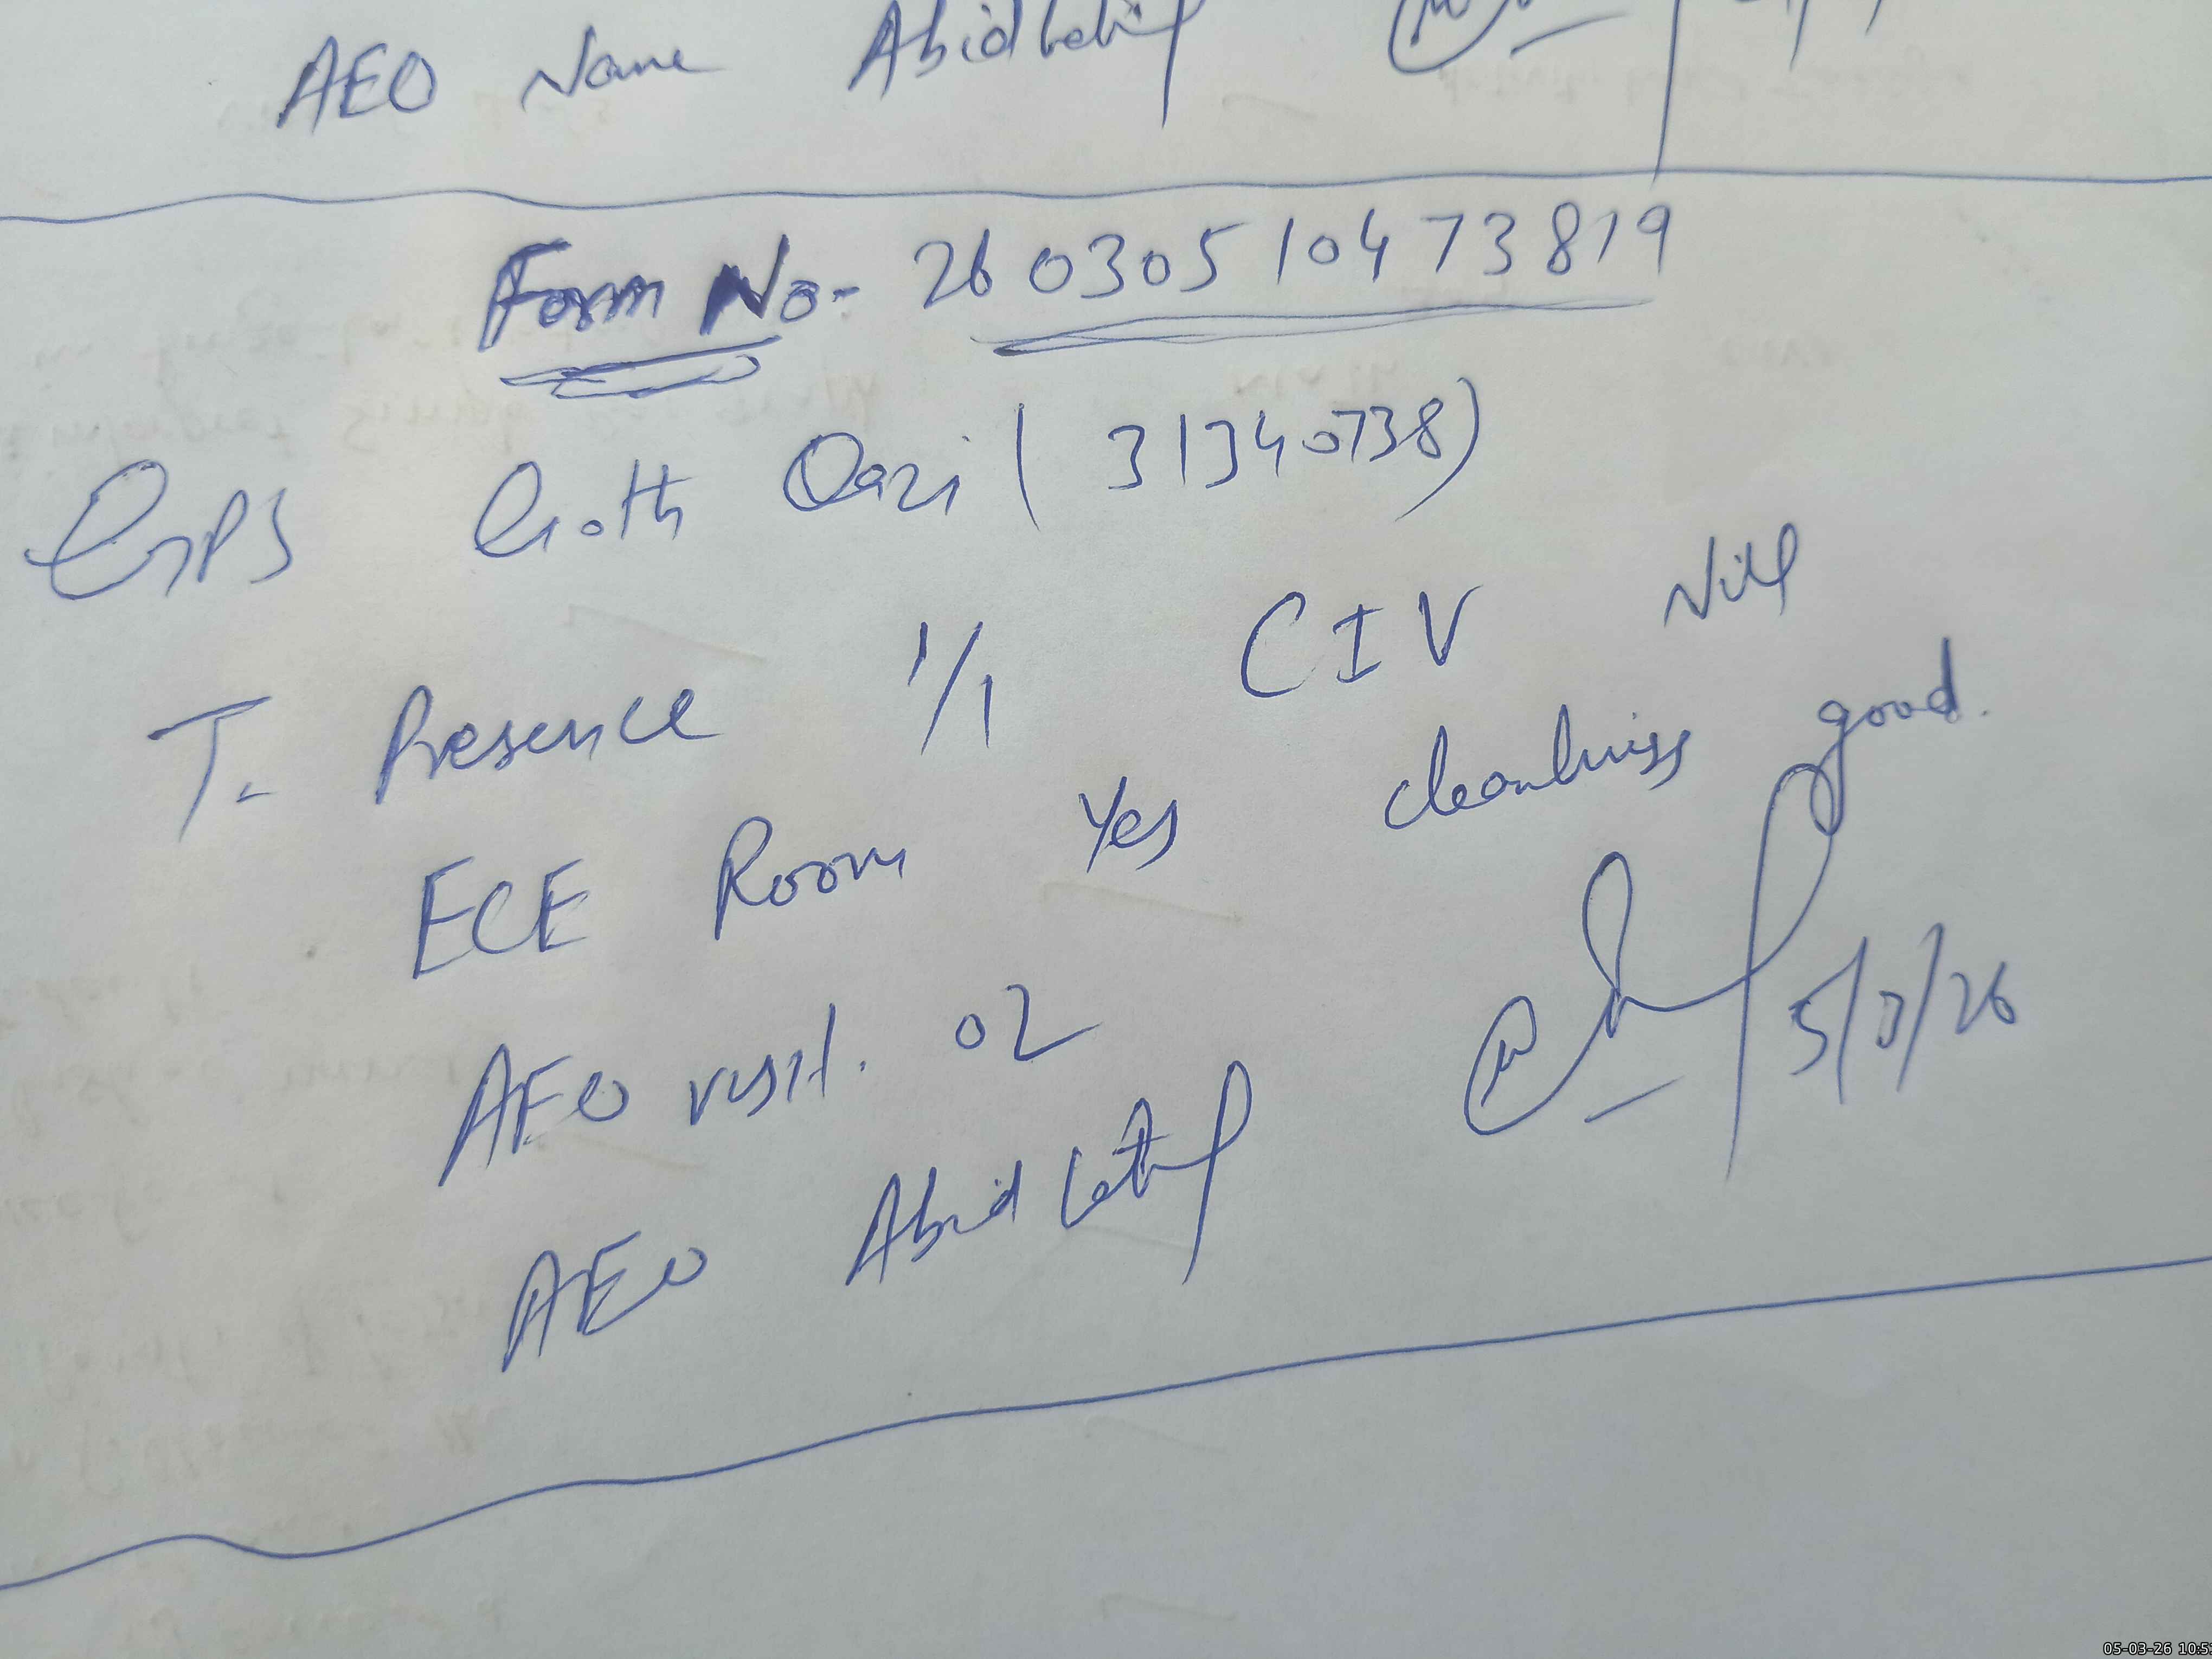 AEO Name Abid Latif
Form No- 260305 10473819
GPS Goth Qazi (31340738)
T. Presence 1/1 CIV Nill
ECE Room Yes cleanliness good.
AEO visit. 02
AEO Abid Latif 5/3/26
05-03-26 10:5